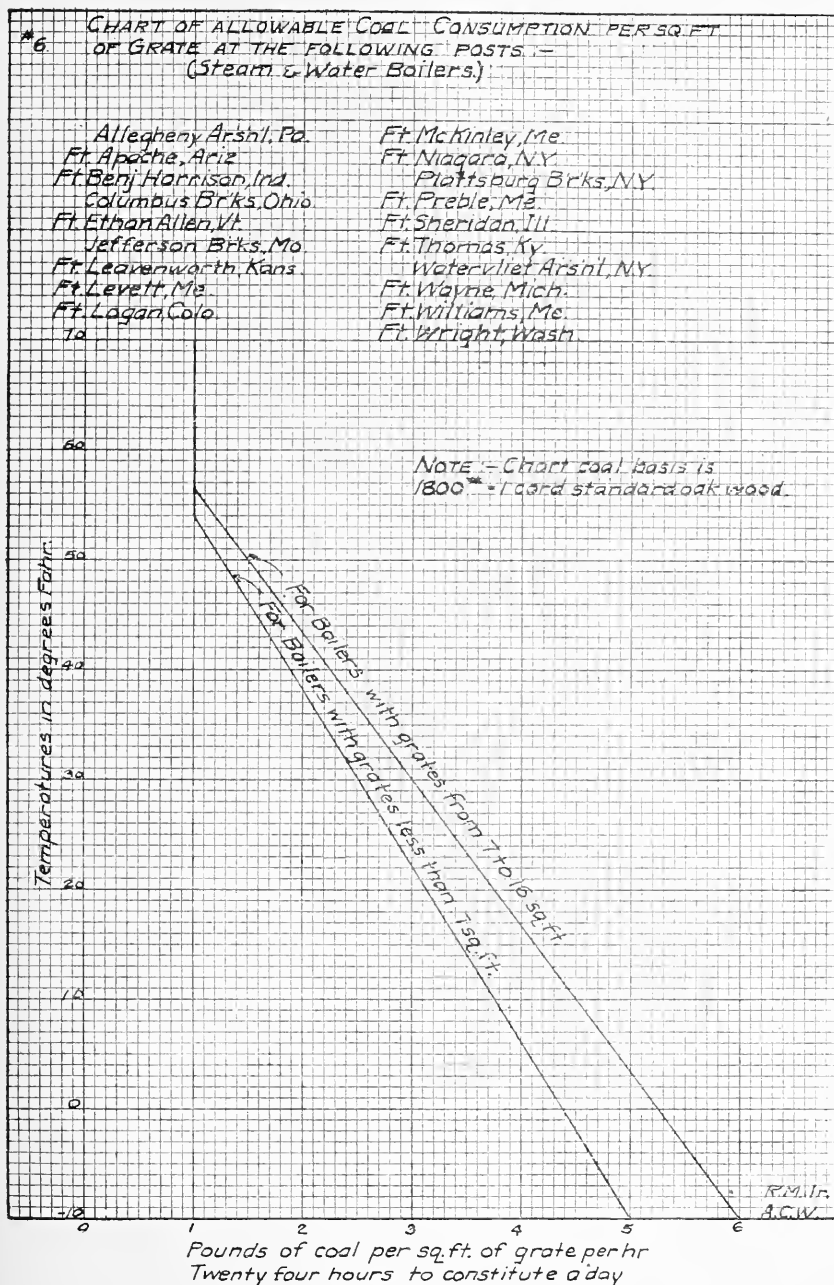 #6 CHART OF ALLOWABLE COAL CONSUMPTION PER SQ.FT
OF GRATE AT THE FOLLOWING POSTS:-
(Steam & Water Boilers.)
Allegheny Arsn'l, Pa.
Ft. Apache, Ariz
Ft. Benj Harrison, Ind.
Columbus Br'ks, Ohio.
Ft. Ethan Allen, Vt.
Jefferson Brks, Mo.
Ft. Leavenworth, Kans.
Ft. Levett, Me.
Ft. Logan, Colo.
Ft. McKinley, Me.
Ft. Niagara, N.Y.
Plattsburg Br'ks, N.Y.
Ft. Preble, Me.
Ft. Sheridan, Ill.
Ft. Thomas, Ky.
Watervliet Arsn'l, N.Y.
Ft. Wayne, Mich.
Ft. Williams, Me.
Ft. Wright, Wash.
NOTE:- Chart coal basis is
1800# - 1 cord standard oak wood.
Temperatures in degrees Fahr.
70
60
50
40
30
20
10
0
-10
For Boilers with grates from 7 to 16 sq.ft
For Boilers with grates less than 7 sq.ft.
R.M.Jr.
A.C.W.
0 1 2 3 4 5 6
Pounds of coal per sq.ft. of grate per hr
Twenty four hours to constitute a day